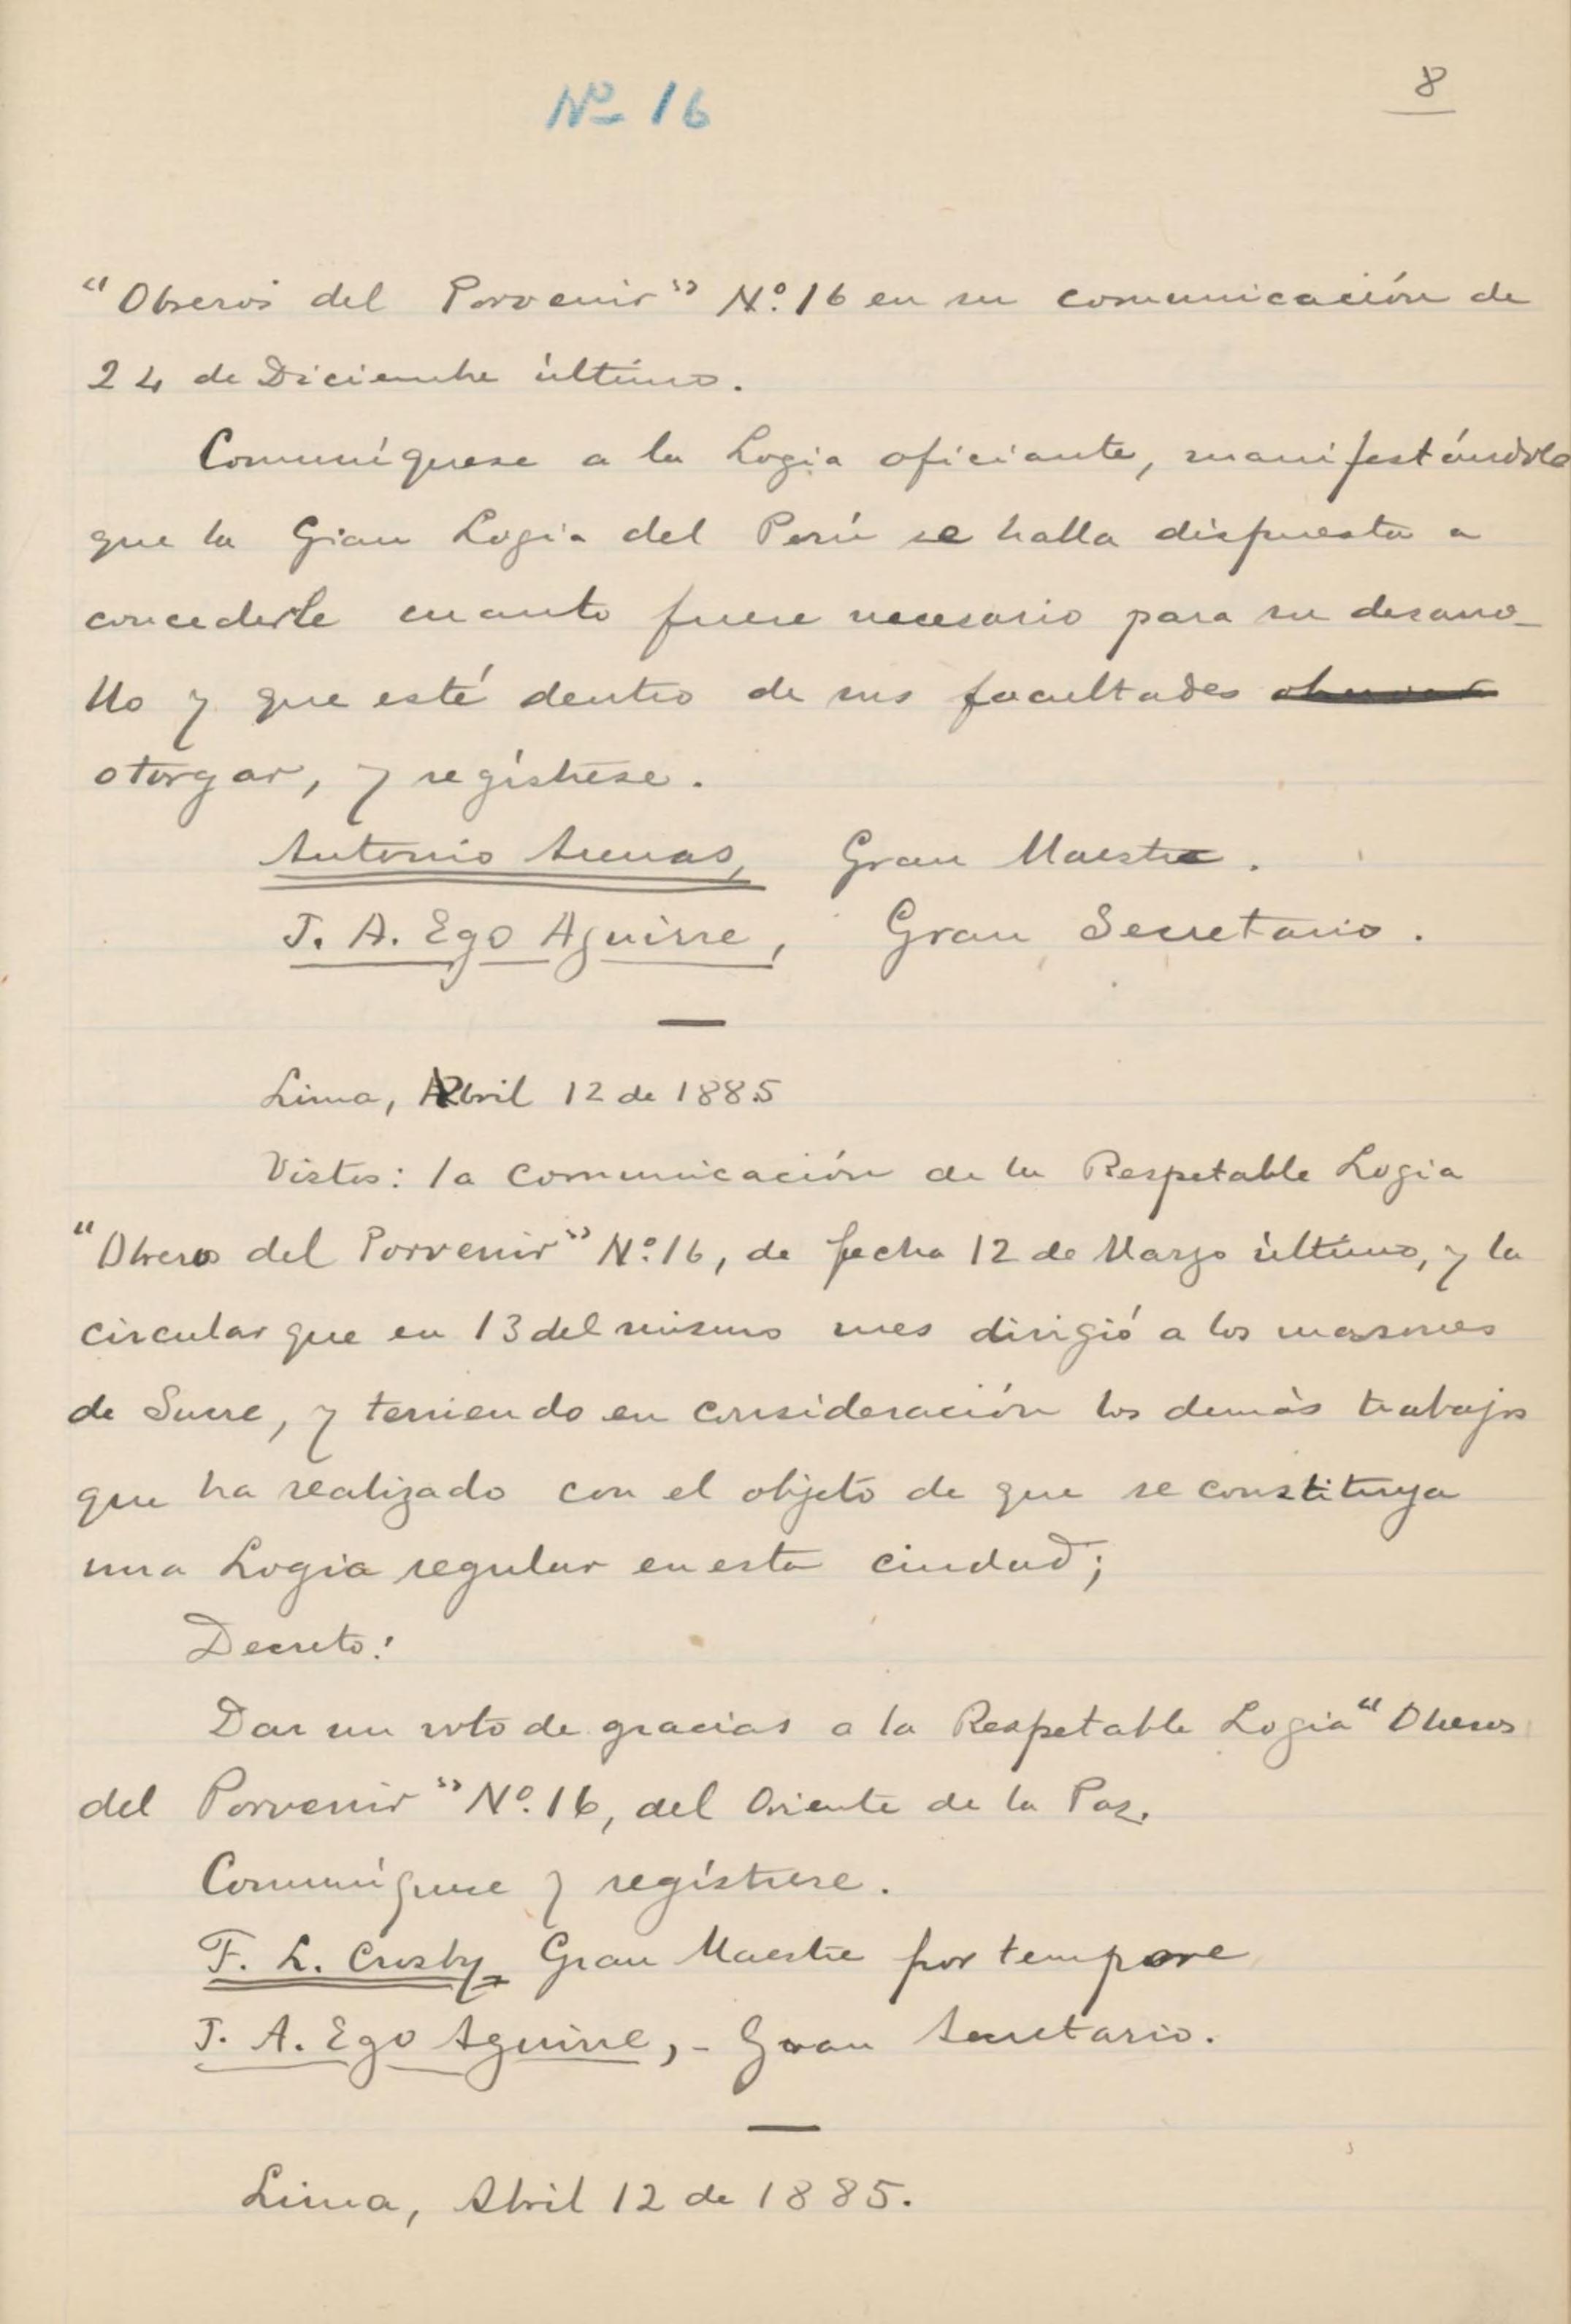 Nº 16
8
"Obreros del Porvenir" Nº. 16 en su comunicación de
24 de Diciembre último.
Comuníquese a la Logia oficiante, manifestándole
que la Gran Logia del Perú se halla dispuesta a
concederle cuanto fuere necesario para su desarro-
llo y que esté dentro de sus facultades
otorgar, y regístrese.
Antonio Arenas, Gran Maestre.
J. A. Ego Aguirre, Gran Secretario.
—
Lima, Abril 12 de 1885
Vistos: la comunicación de la Respetable Logia
"Obreros del Porvenir" Nº. 16, de fecha 12 de Marzo último, y la
circular que en 13 del mismo mes dirigió a los masones
de Sucre, y teniendo en consideración los demás trabajos
que ha realizado con el objeto de que se constituya
una Logia regular en esta ciudad;
Decreto:
Dar un voto de gracias a la Respetable Logia "Obreros
del Porvenir" Nº. 16, del Oriente de la Paz.
Comuníquese y regístrese.
F. L. Crosby, Gran Maestre por tempore
J. A. Ego Aguirre, - Gran Secretario.
—
Lima, Abril 12 de 1885.